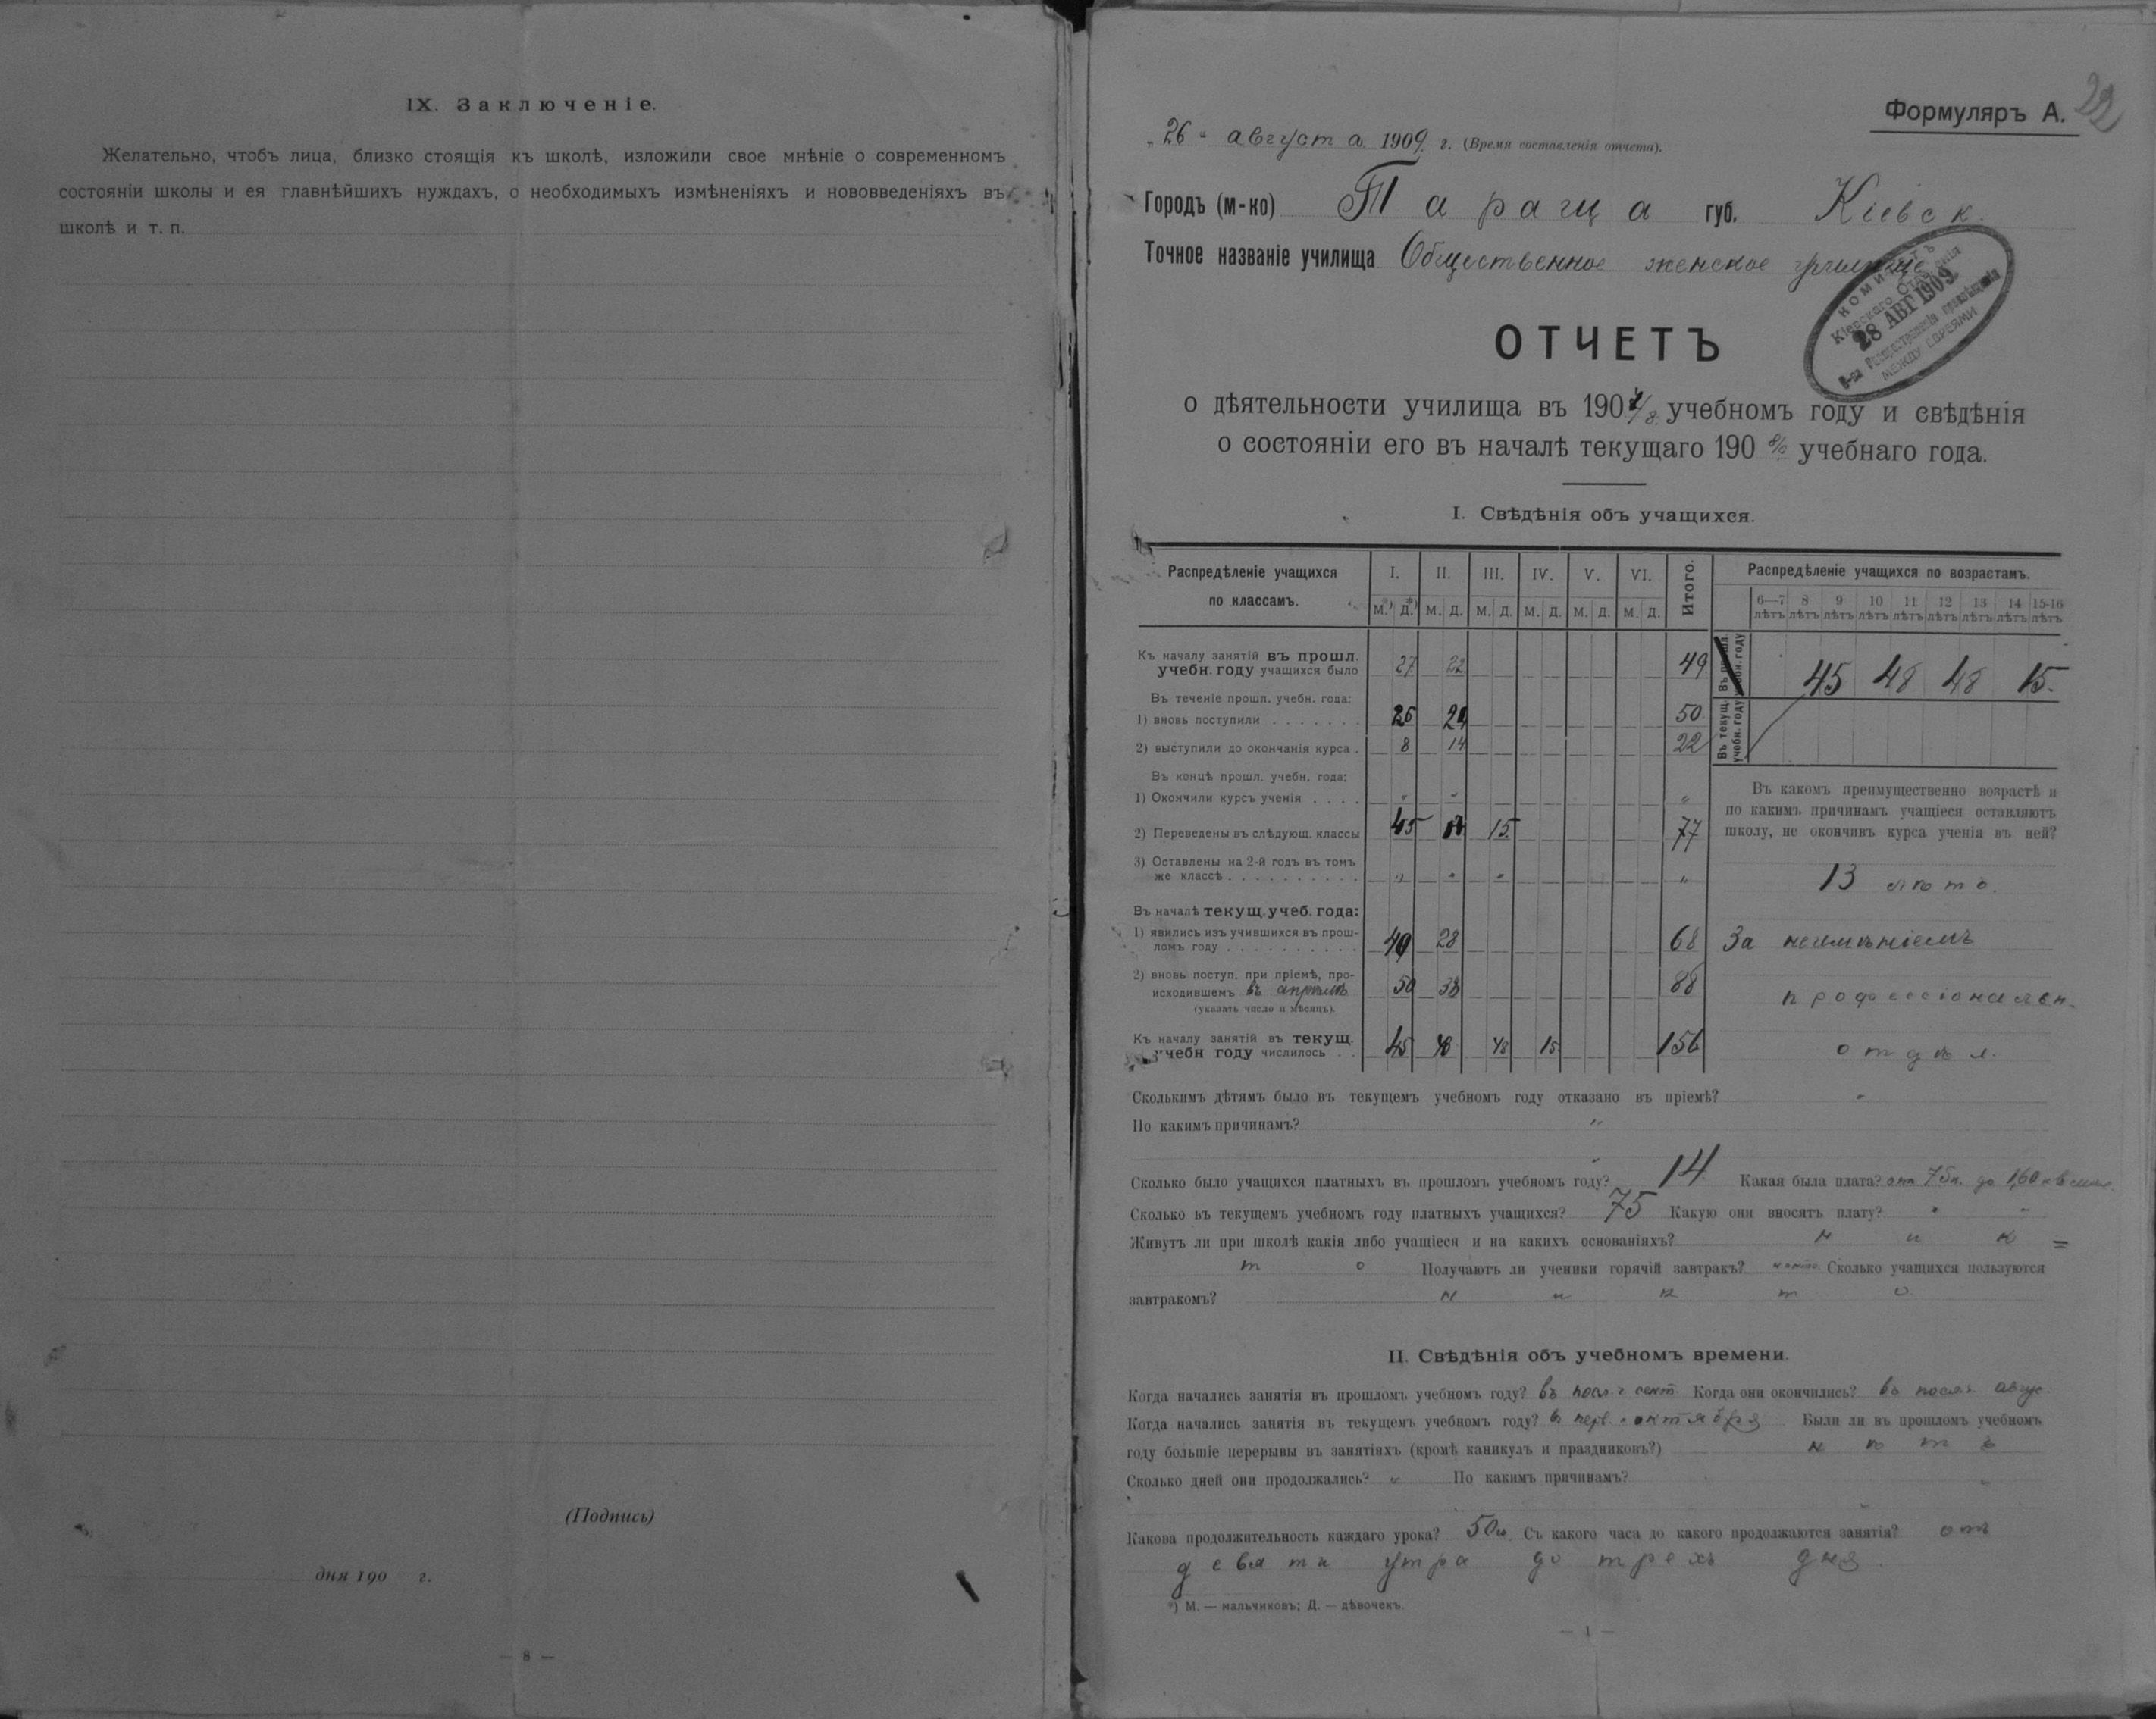 IX. Заключеніе.
Желательно, чтобъ лица, близко стоящія къ школѣ, изложили свое мнѣніе о современномъ
состояніи школы и ея главнѣйшихъ нуждахъ, о необходимыхъ измѣненіяхъ и нововведеніяхъ въ
школѣ и т. п.
(Подпись)
дня 190 г.
— 8 —
Формуляръ А.
22
„26" августа 1909 г. (Время составленія отчета).
Городъ (м-ко) Тараща губ. Кіевск.
Точное названіе училища Общественное женское училище
КОМИТЕТЪ
Кіевскаго Отдѣленія
28 АВГ 1909
О-ва Распространенія просвѣщенія
МЕЖДУ ЕВРЕЯМИ
ОТЧЕТЪ
о дѣятельности училища въ 1907/8 учебномъ году и свѣдѣнія
о состояніи его въ началѣ текущаго 190 8/9 учебнаго года.
I. Свѣдѣнія объ учащихся.
Распредѣленіе учащихся по классамъ. I. II. III. IV. V. VI. Итого.
М.*) Д.*) М. Д. М. Д. М. Д. М. Д. М. Д.
Къ началу занятій въ прошл. учебн. году учащихся было 27 22 49
Въ теченіе прошл. учебн. года:
1) вновь поступили 26 24 50
2) выступили до окончанія курса 8 14 22
Въ концѣ прошл. учебн. года:
1) Окончили курсъ ученія " " "
2) Переведены въ слѣдующ. классы 45 15 77
3) Оставлены на 2-й годъ въ томъ же классѣ " " " "
Въ началѣ текущ. учеб. года:
1) явились изъ учившихся въ прошломъ году 40 28 68
2) вновь поступ. при пріемѣ, происходившемъ въ апрѣлѣ 50 38 88
(указать число и мѣсяцъ).
Къ началу занятій въ текущ. учебн году числилось 45 48 48 15 156
Распредѣленіе учащихся по возрастамъ.
6—7 лѣтъ 8 лѣтъ 9 лѣтъ 10 лѣтъ 11 лѣтъ 12 лѣтъ 13 лѣтъ 14 лѣтъ 15-16 лѣтъ
Въ прошл. учебн. году 45 48 48 15.
Въ текущ. учебн. году
Въ какомъ преимущественно возрастѣ и
по какимъ причинамъ учащіеся оставляютъ
школу, не окончивъ курса ученія въ ней?
13 лѣтъ.
За неимѣніемъ
профессіональн.
отдѣл.
Сколькимъ дѣтямъ было въ текущемъ учебномъ году отказано въ пріемѣ? "
По какимъ причинамъ? "
Сколько было учащихся платныхъ въ прошломъ учебномъ году? 14 Какая была плата? отъ 75к. до 1,60 к
Сколько въ текущемъ учебномъ году платныхъ учащихся? 75 Какую они вносятъ плату? " "
Живутъ ли при школѣ какія либо учащіеся и на какихъ основаніяхъ? ник=
то Получаютъ ли ученики горячій завтракъ? Сколько учащихся пользуются
завтракомъ? никто
II. Свѣдѣнія объ учебномъ времени.
Когда начались занятія въ прошломъ учебномъ году? въ посл. ч сент. Когда они окончились? въ послѣ. авгус.
Когда начались занятія въ текущемъ учебномъ году? въ перв. ч. октября Были ли въ прошломъ учебномъ
году большіе перерывы въ занятіяхъ (кромѣ каникулъ и праздниковъ?) нѣтъ
Сколько дней они продолжались? " По какимъ причинамъ?
Какова продолжительность каждаго урока? 50м. Съ какого часа до какого продолжаются занятія? отъ
девяти утра до трехъ дня.
*) М. — мальчиковъ; Д. — дѣвочекъ.
— 1 —